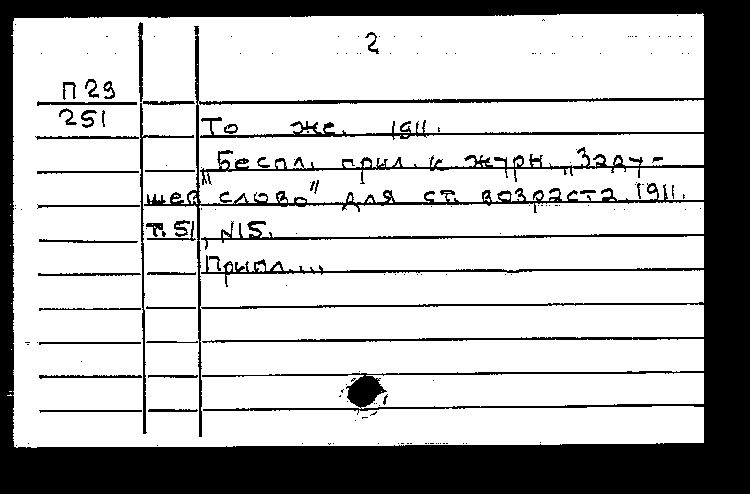 2
П 29
251
То же. 1911.
„Беспл. прил. к журн. „Заду-
шев. слово" для ст. возраста. 1911.
т. 51, N15.
Припл....